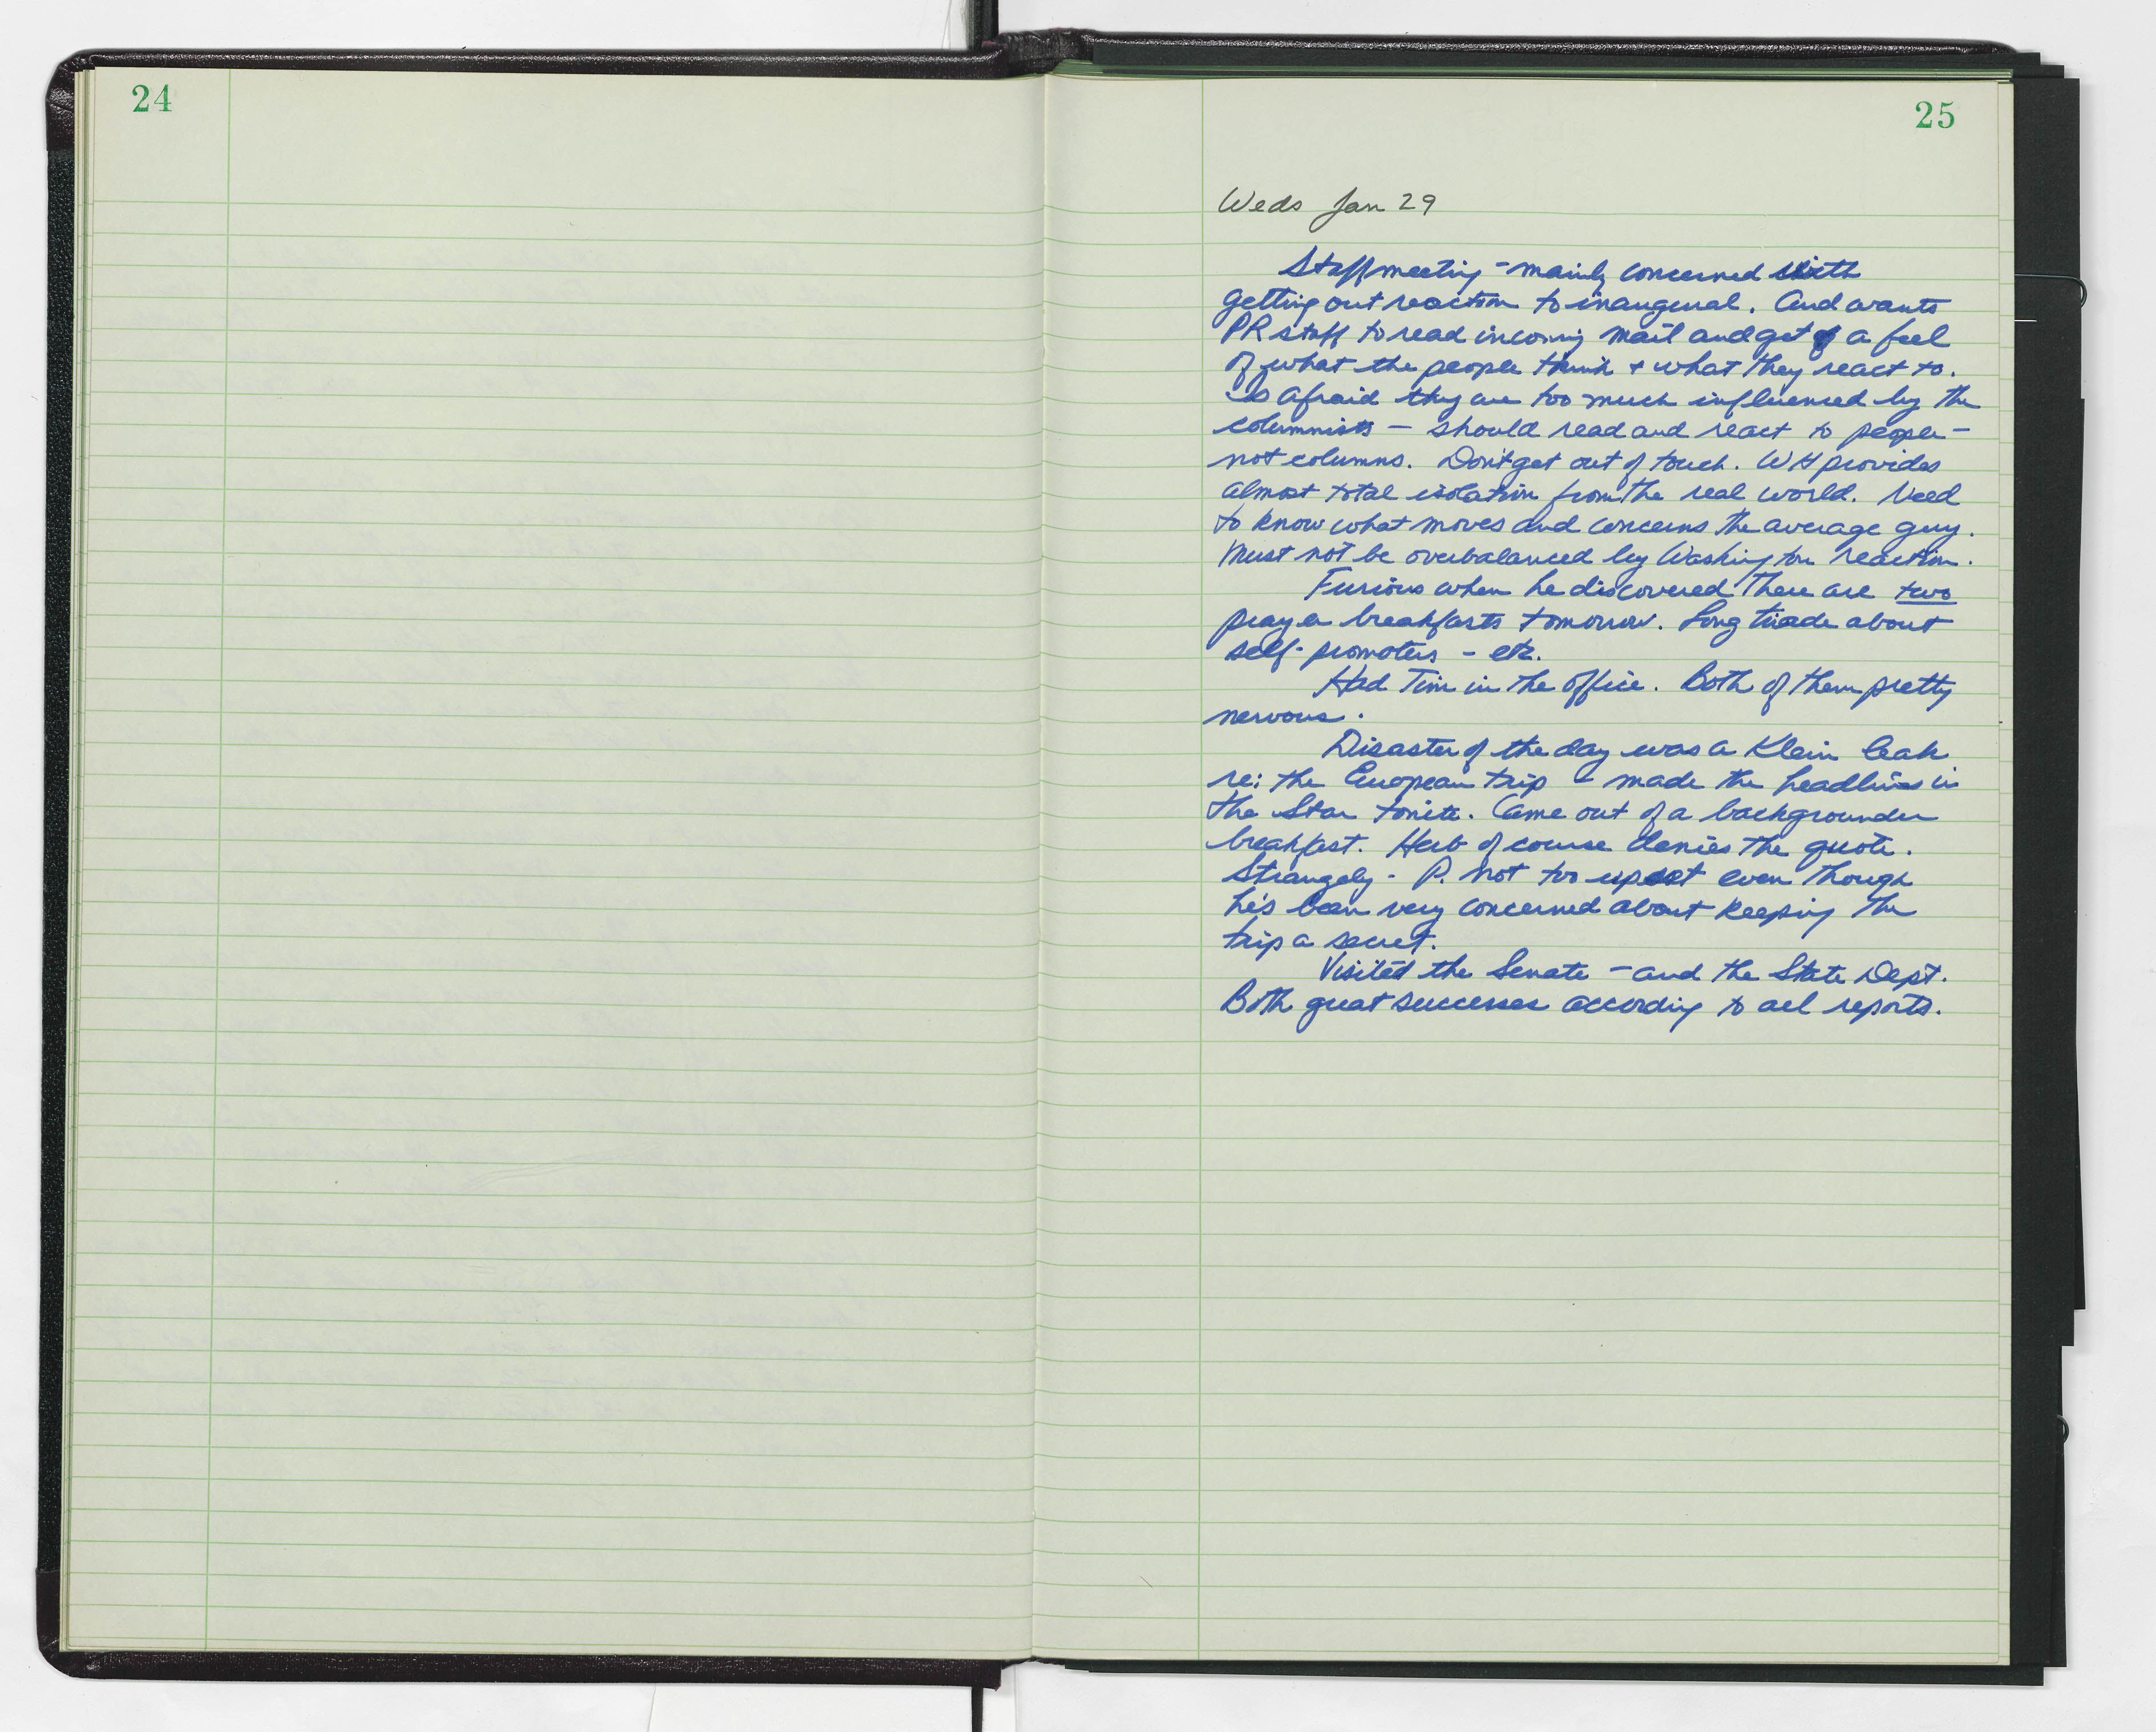 24
25
Weds Jan 29
Staff meeting - mainly concerned with
getting out reaction to inaugural. And wants
PR staff to read incoming mail and get a feel
of what the people think + what they react to.
is afraid they are too much influenced by the
columnists — should read and react to people -
not columns. Don't get out of touch. WH provides
almost total isolation from the real world. Need
to know what moves and concerns the average guy.
Must not be overbalanced by Washington reaction.
Furious when he discovered there are two
prayer breakfasts tomorrow. Long tirade about
self-promoters - etc.
Had Tim in the office. Both of them pretty
nervous.
Disaster of the day was a Klein leak
re: the European trip - made the headlines in
the Star tonite. Came out of a backgrounder
breakfast. Herb of course denies the quote.
Strangely - P. not too upset even though
he's been very concerned about keeping the
trip a secret.
Visited the Senate - and the State Dept.
Both great successes according to all reports.